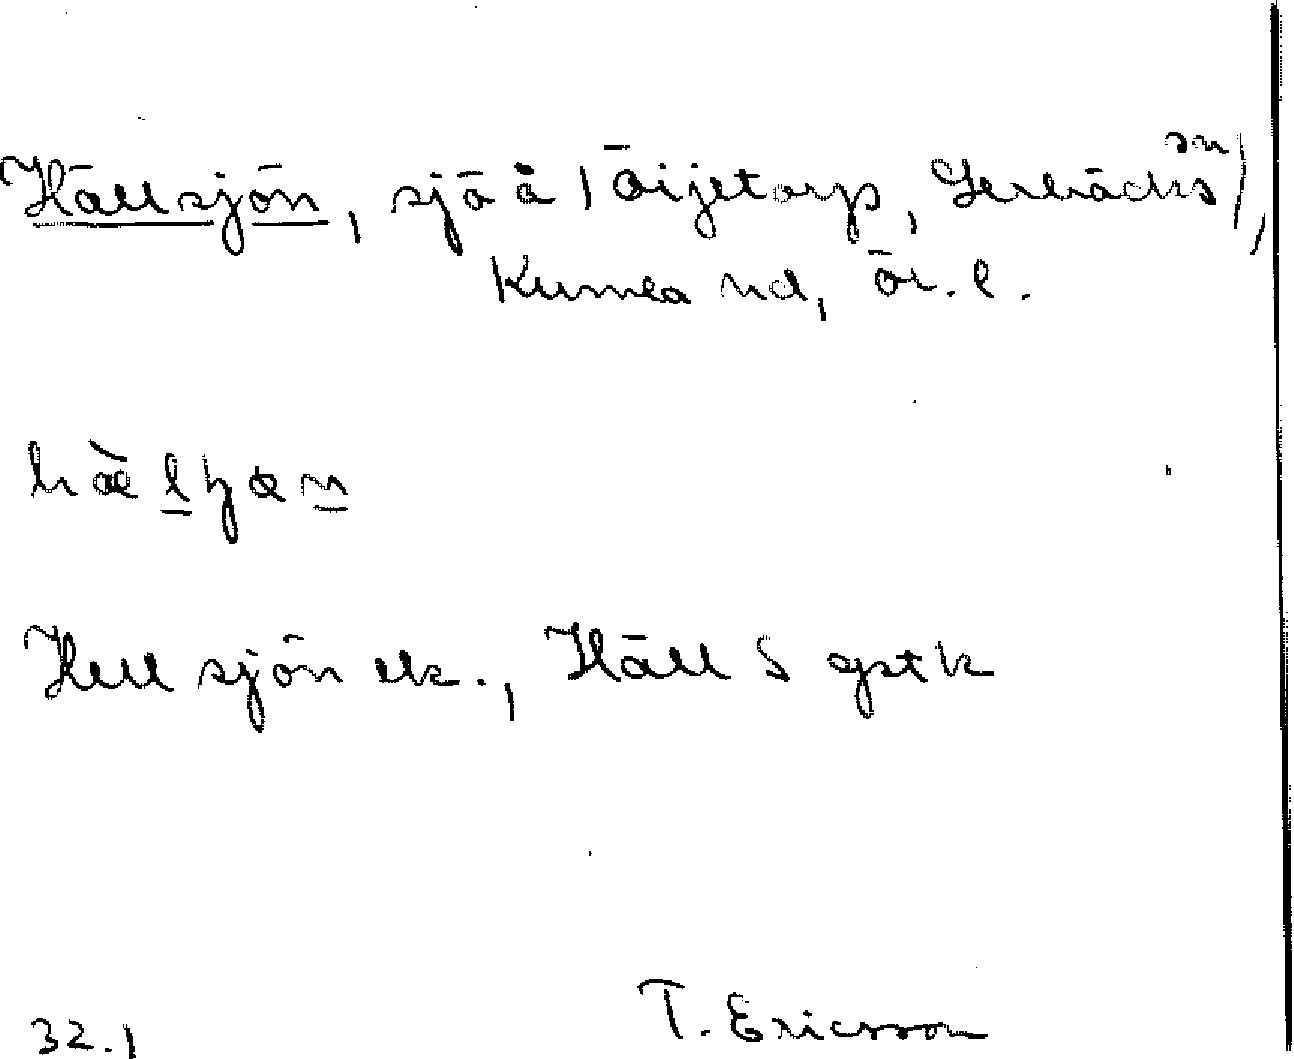 Hällsjön, sjö å Töijetorp, Lerbäcks sn,
Kumla hd, Ör. l.
hæ̀lʃøn
Hellsjön ek., Häll S gstk
32.1 T. Ericsson